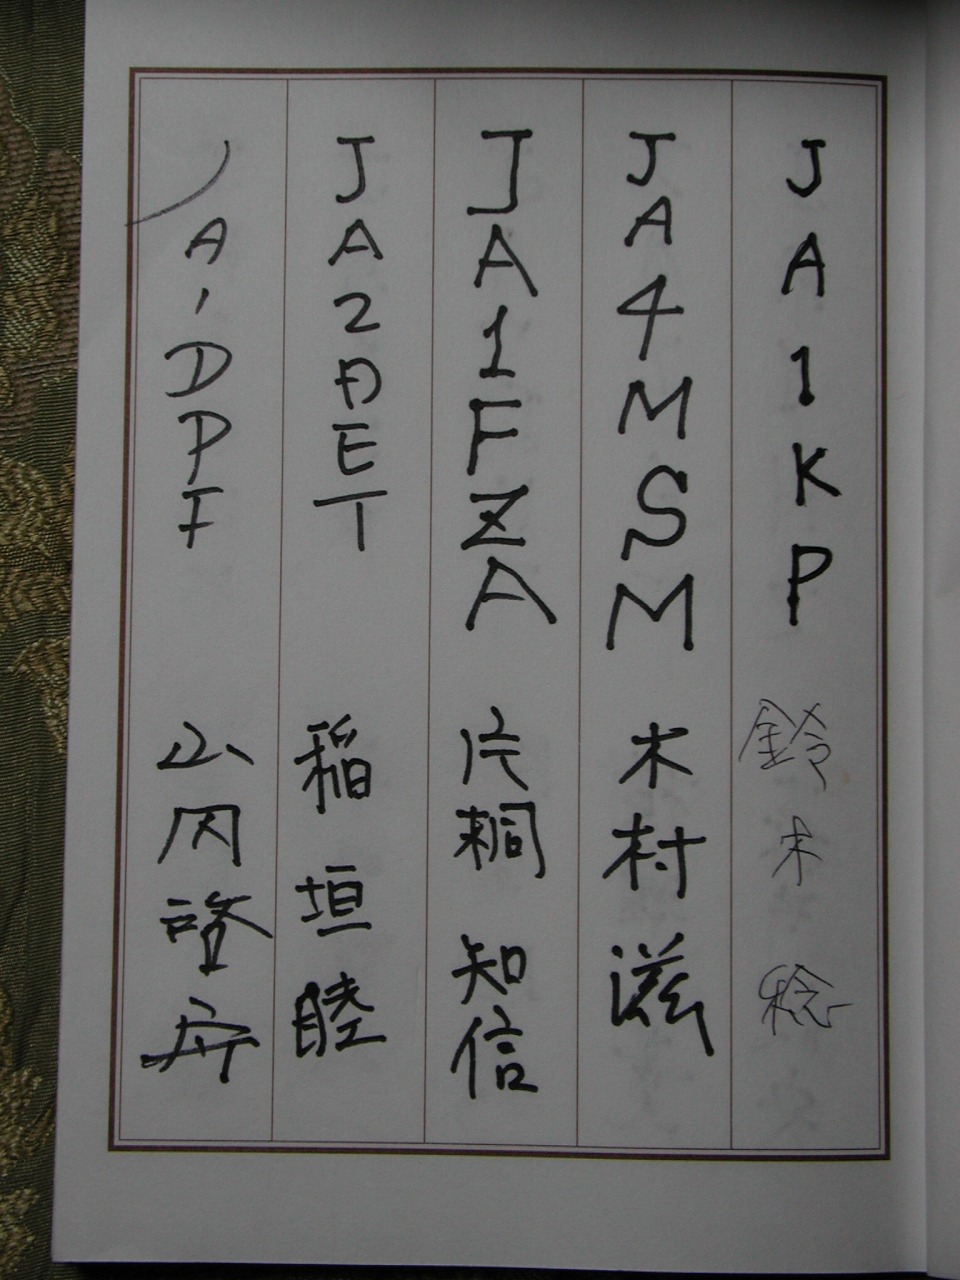 JA1KP 鈴木 稔
JA4MSM 木村滋
JA1FZA 片桐 知信
稲垣睦
JA1DPF 山内